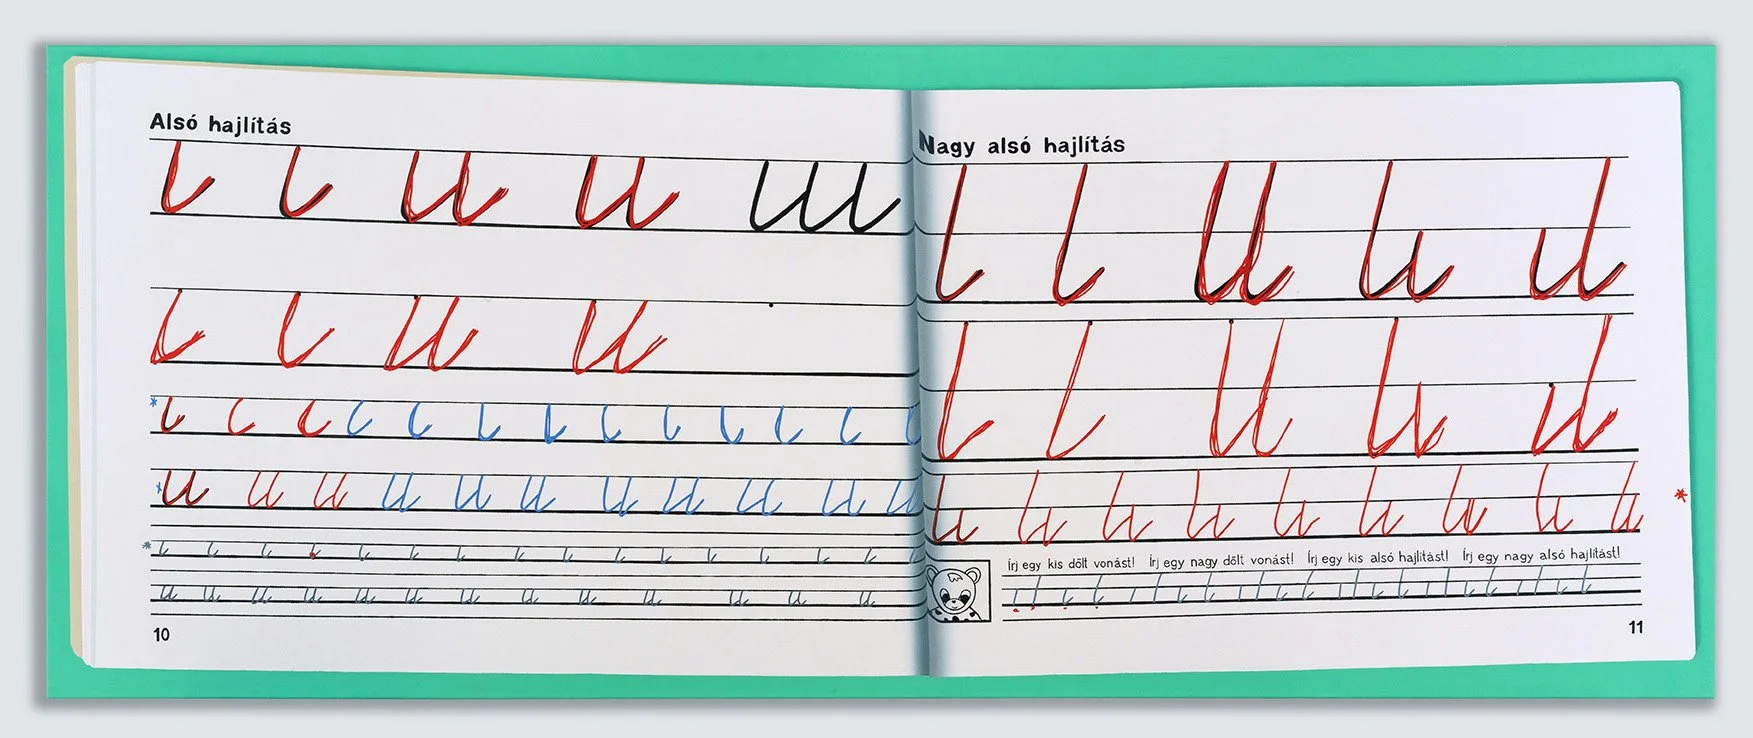 Alsó hajlítás
10
Nagy alsó hajlítás
Írj egy kis dőlt vonást! Írj egy nagy dőlt vonást! Írj egy kis alsó hajlítást! Írj egy nagy alsó hajlítást!
11